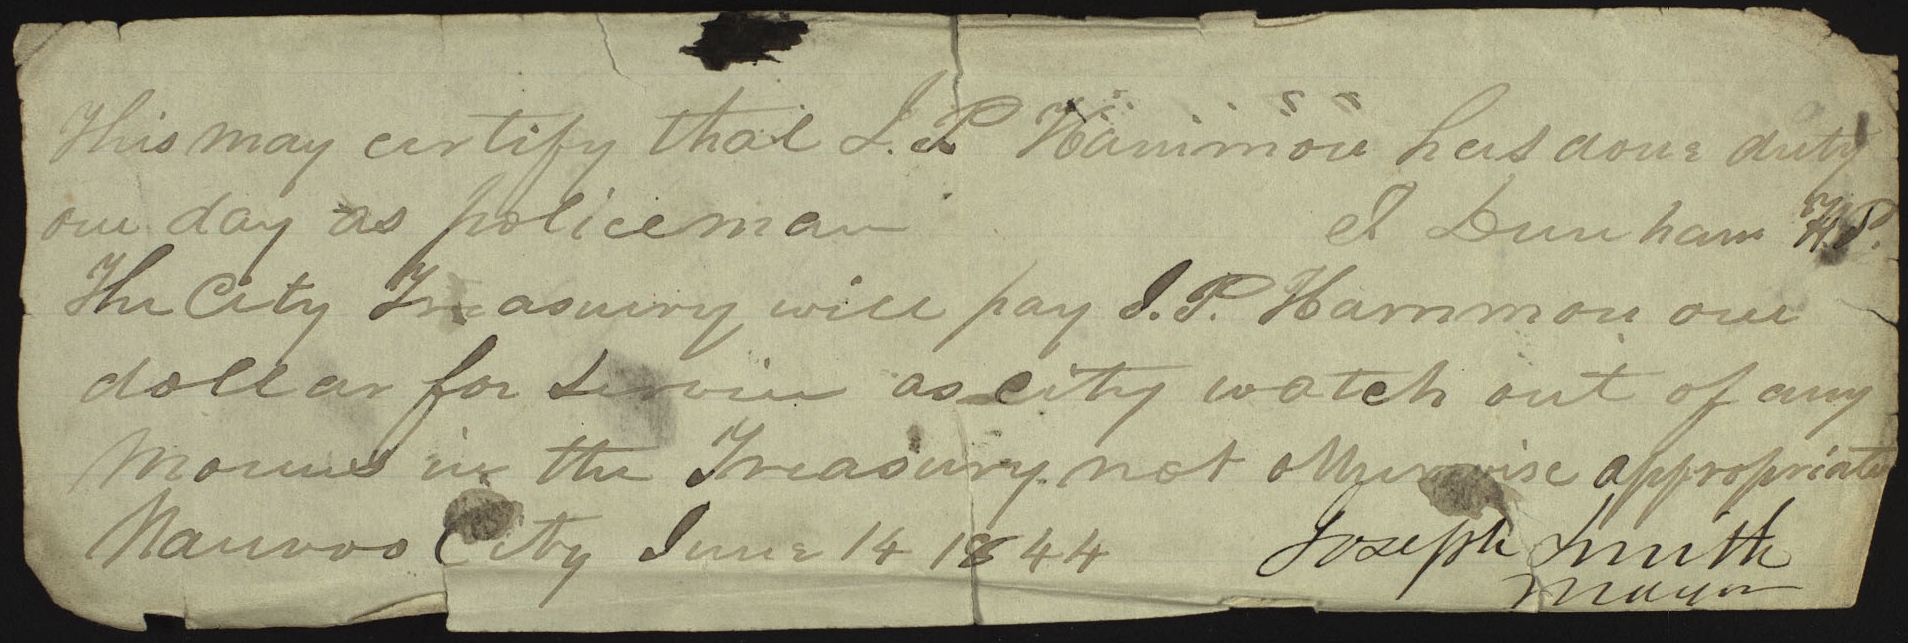 This may certify that I. P Harrimon has done duty
one day as policeman J Dunham H.P.
The City Treasury will pay I. P. Harrmon one
dollar for service as city watch out of any
Monies in the Treasury not otherwise appropriated
Nauvoo City June 14 1844 Joseph Smith
Mayor